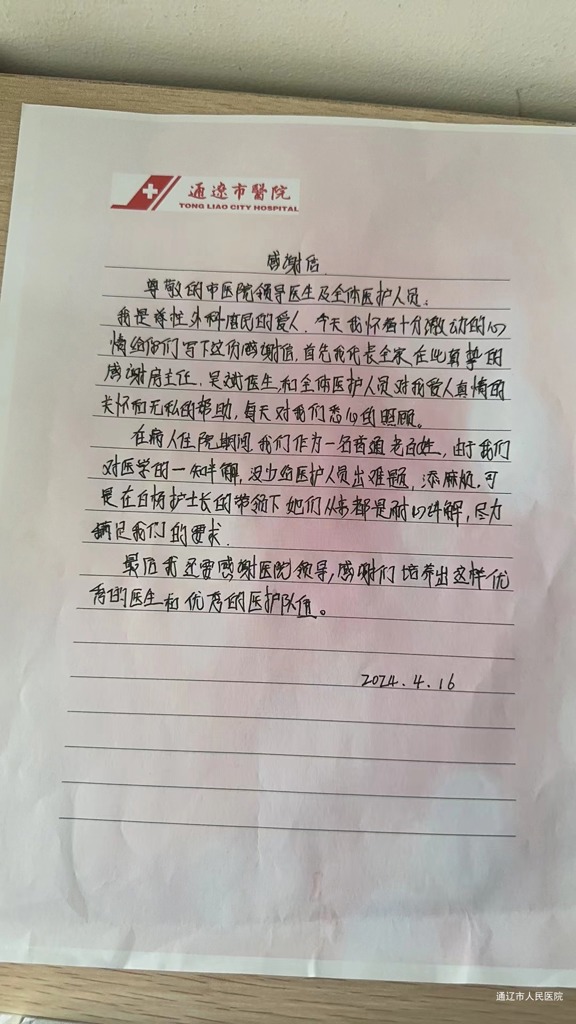 通遼市醫院
TONG LIAO CITY HOSPITAL
感谢信
尊敬的中医院领导医生及全体医护人员:
我是祥性外科 民的爱人,今天我怀着十分激动的心
情给你们写下这份感谢信,首先我代表全家在此真挚的
感谢房主任,吴斌医生,和全体医护人员对我爱人真情的
关怀和无私的帮助,每天对我们悉心的照顾。
在病人住院期间,我们作为一名普通老百姓,由于我们
对医学的一知半解,没少给医护人员出难题,添麻烦,可
是在白杨护士长的带领下她们从来都是耐心讲解,尽力
满足我们的要求.
最后我还要感谢医院领导,感谢们培养出这样优
秀的医生和优秀的医护队伍。
2024.4.16
通辽市人民医院